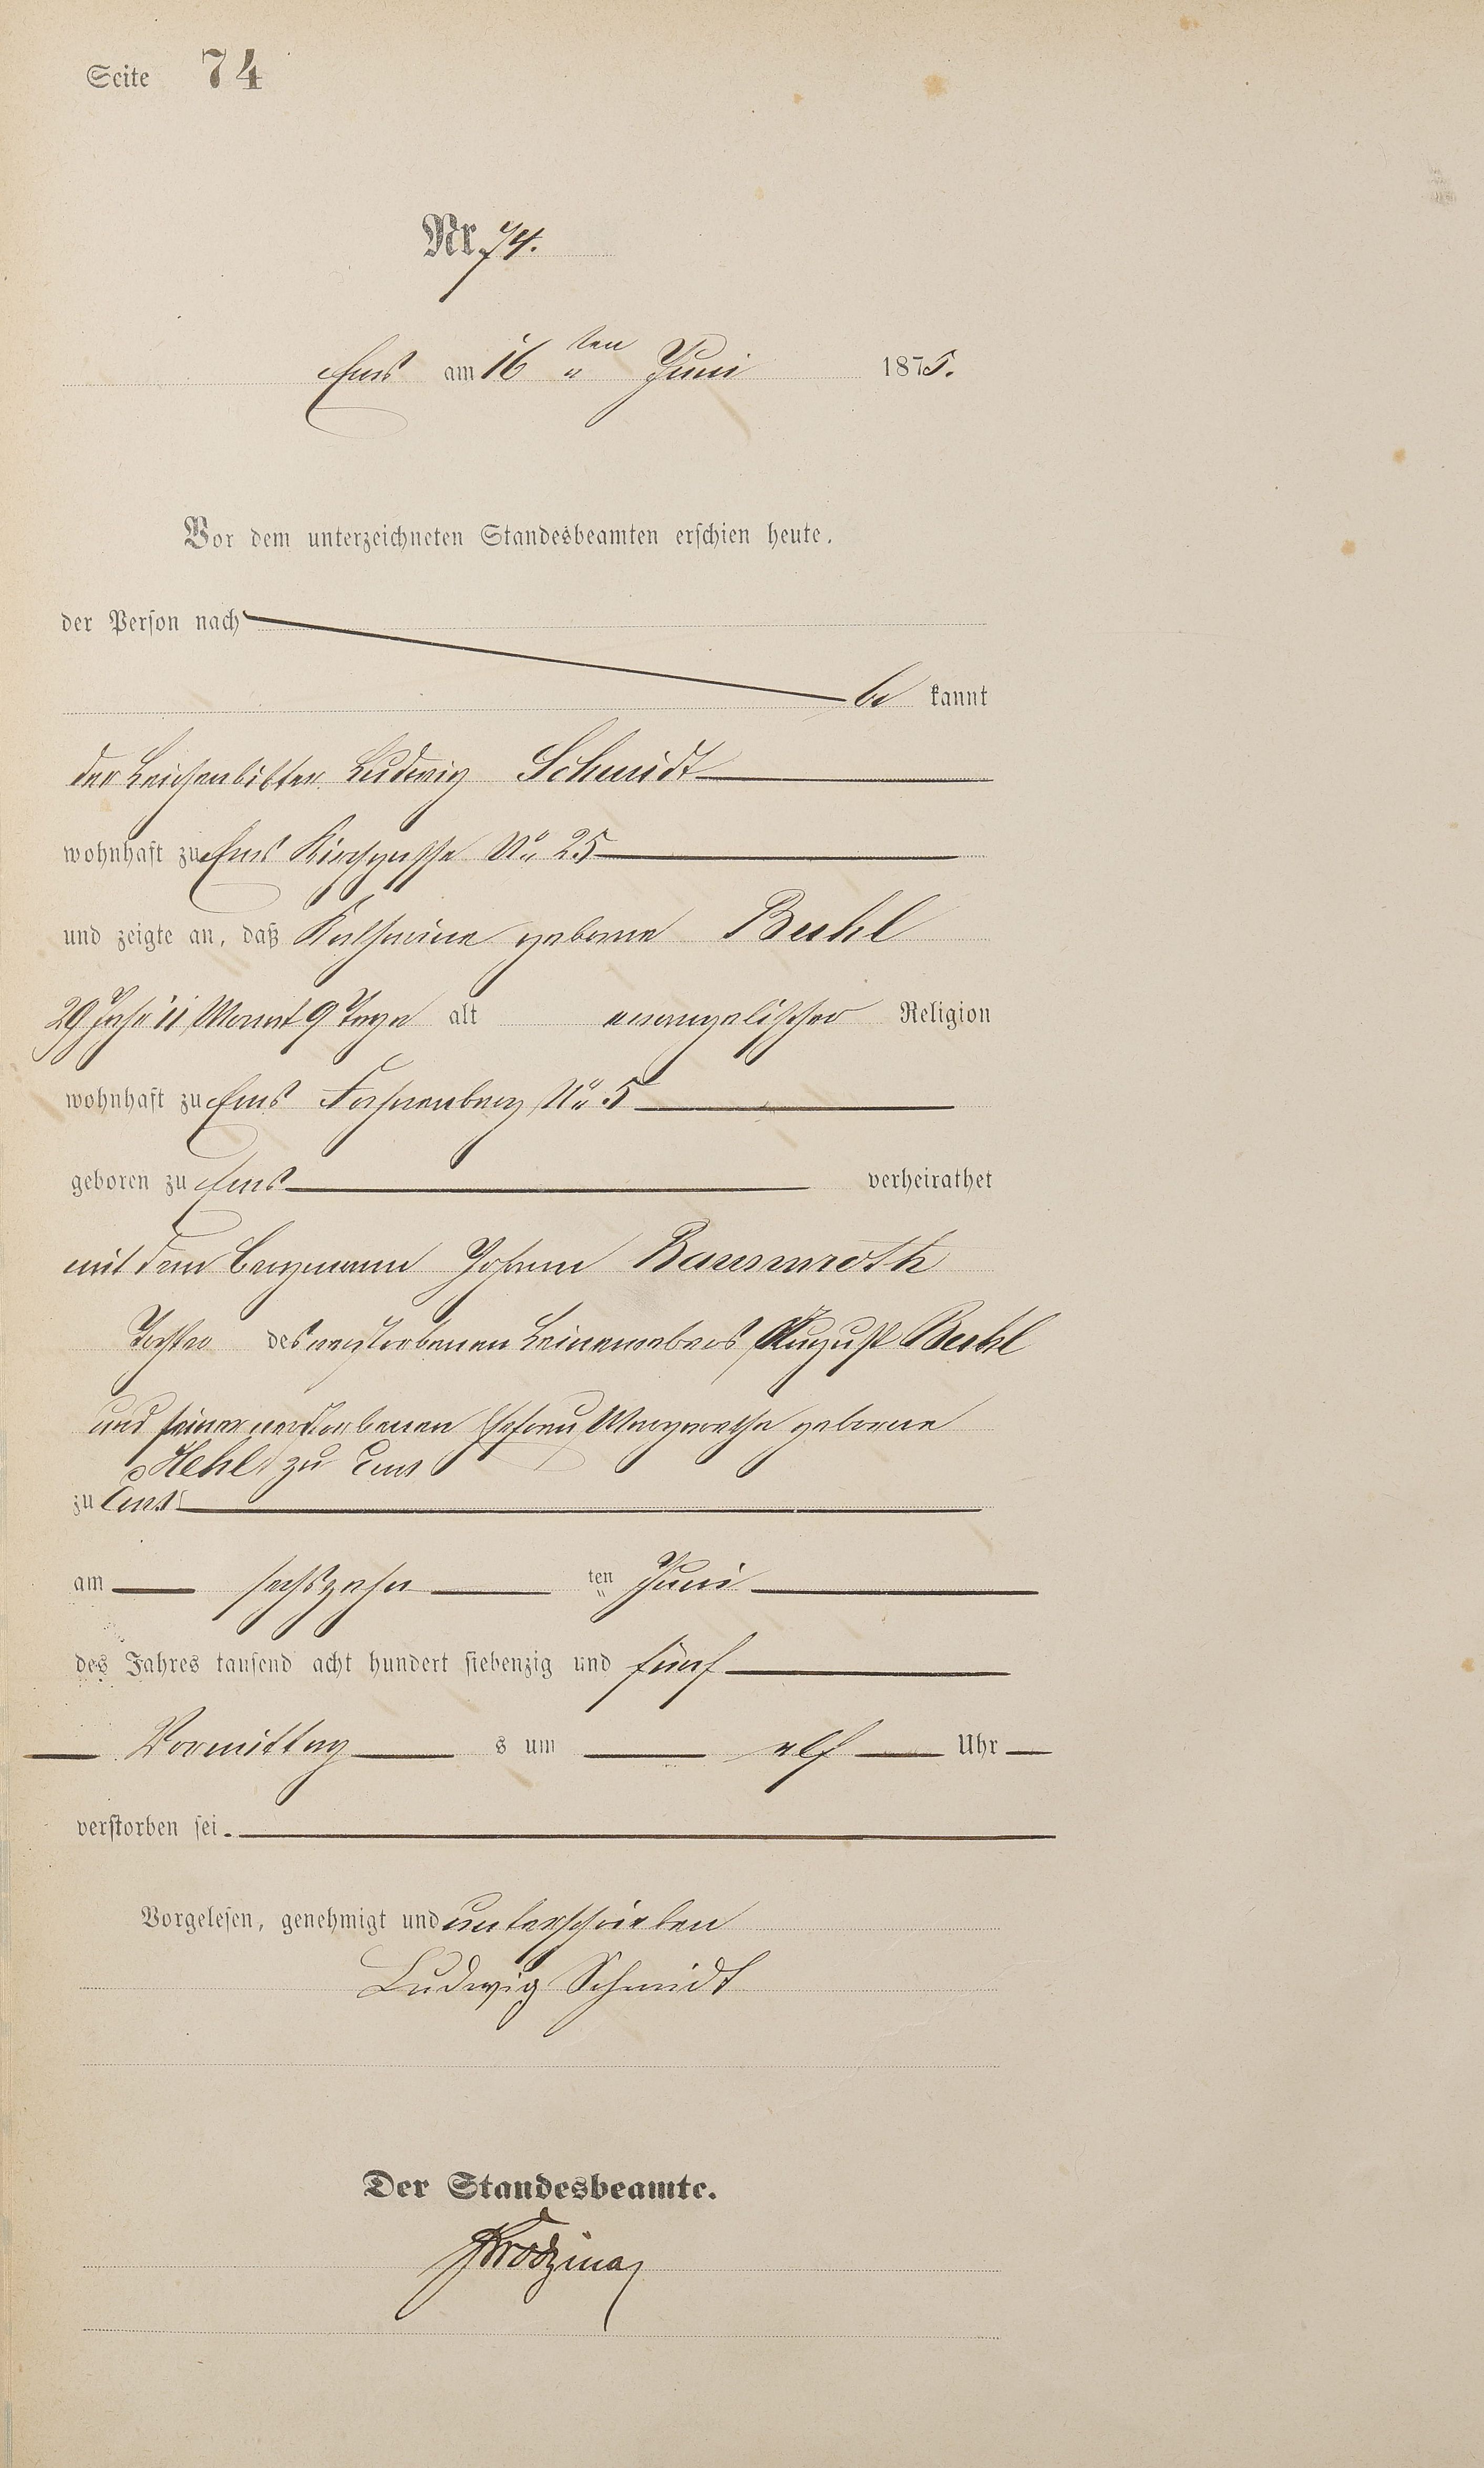 Seite 74
Nr. 74.
Ems am 16 ten Juni 1875.
Vor dem unterzeichneten Standesbeamten erschien heute,
der Person nach
be kannt
der Leichenbitter Ludwig Schmidt
wohnhaft zu Ems Kirchgasse No 25
und zeigte an, daß Katharine geborne Buhl
29 Jahr 11 Monat 9 Tage alt evangelischer Religion
wohnhaft zu Ems No 5
geboren zu Ems verheirathet
mit dem Bergmann Johann Baumroth
Tochter des verstorbenen Leinewebers August Buhl
und seiner verstorbenen Ehefrau Margarethe geborne
Hehl zu Ems
zu Ems
am sechszehn ten Juni
des Jahres tausend acht hundert siebenzig und fünf
Vormittag s um elf Uhr
verstorben sei.
Vorgelesen, genehmigt und unterschrieben
Ludwig Schmidt
Der Standesbeamte.